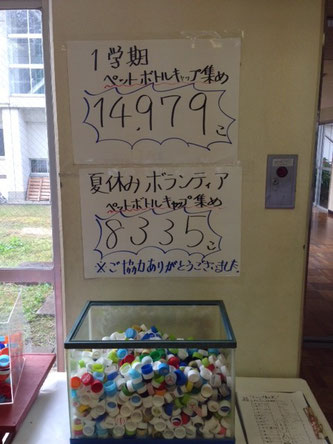 1学期
ペットボトルキャップ集め
14.979こ
夏休みボランティア
ペットボトルキャップ集め
8335こ
※ご協力ありがとうございました